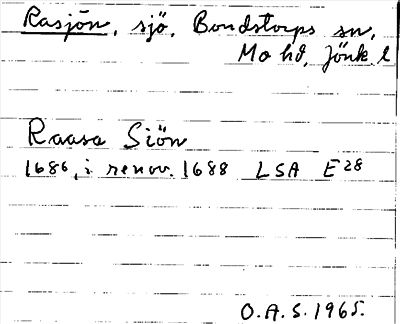 Rasjön, sjö, Bondstorps sn,
Mo hd, Jönk. l
Raasa Siön
1686, i renov. 1688 LSA E28
O.A.S. 1965.